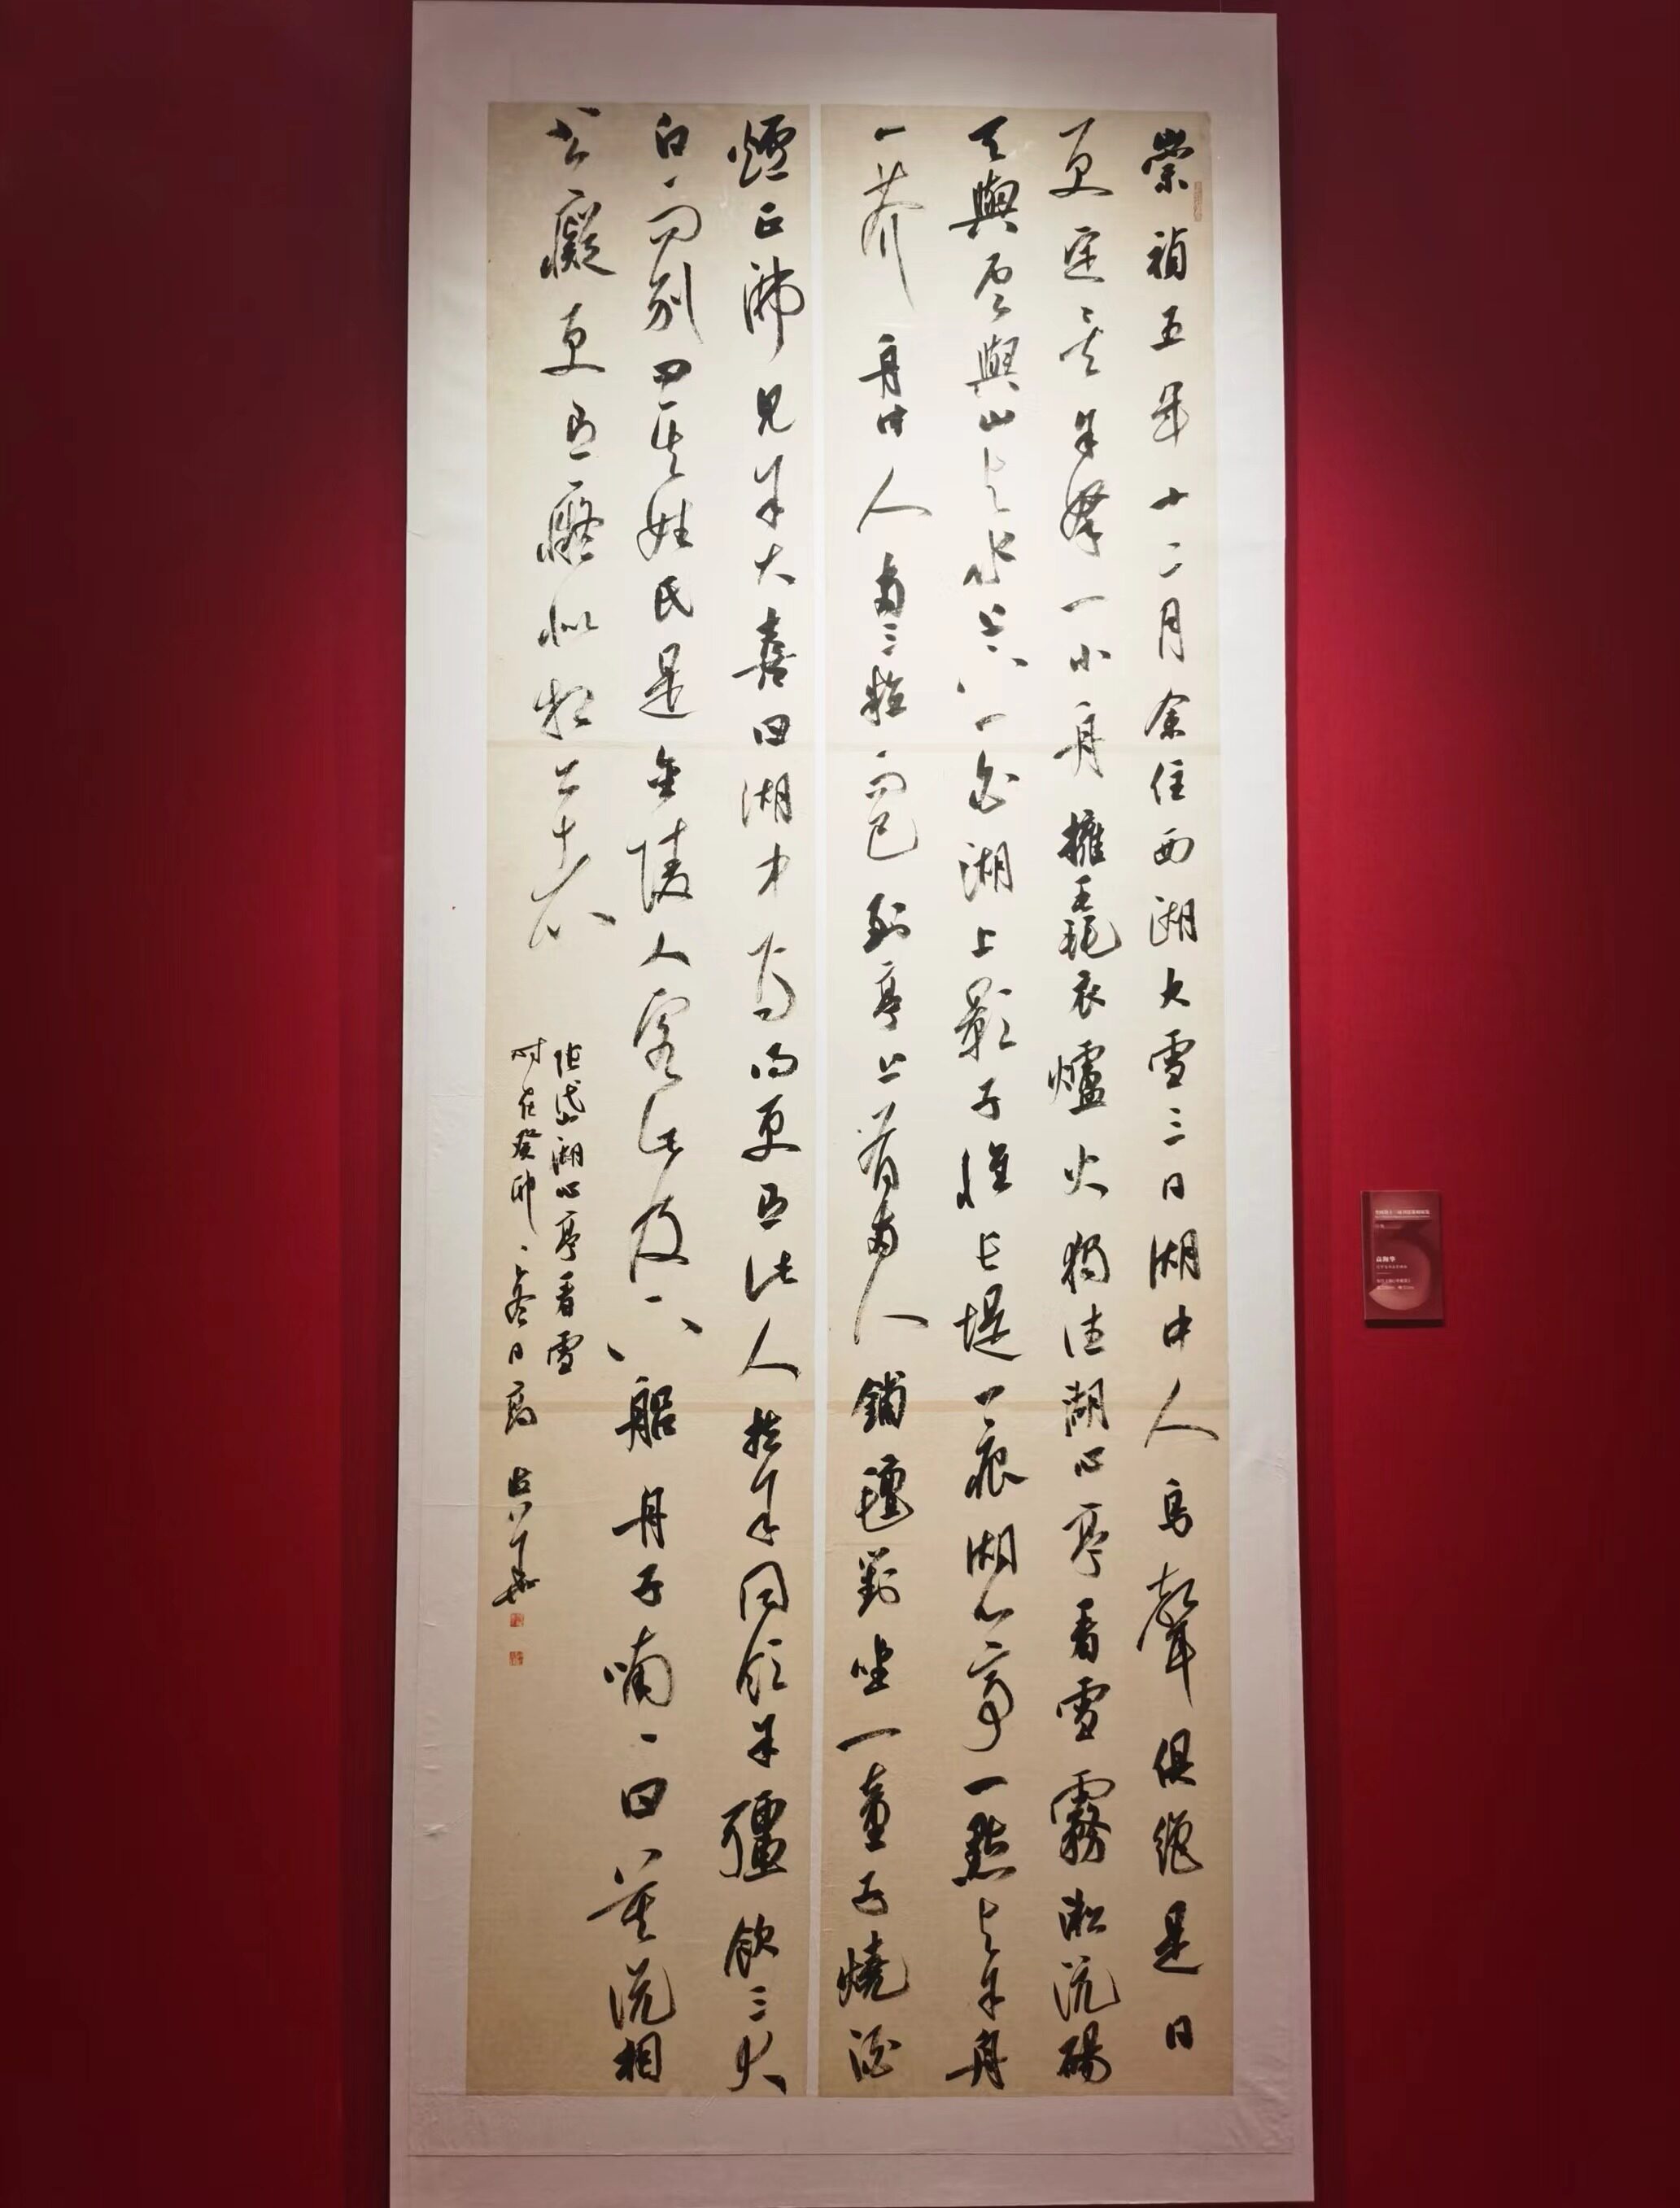 崇禎五年十二月余住西湖大雪三日湖中人鳥聲俱絕是日
更定矣余拏一小舟擁毳衣爐火獨往湖心亭看雪霧淞沆碭
天與雲與山與水上下一白湖上影子惟長堤一痕湖心亭一點與余舟
一芥舟中人兩三粒而已到亭上有兩人鋪氈對坐一童子燒酒
爐正沸見余大喜曰湖中焉得更有此人拉余同飲余彊飲三大
白而別問其姓氏是金陵人客此及下船舟子喃〻曰莫說相
公癡更有癡似相公者
張岱湖心亭看雪
时在癸卯之冬日高